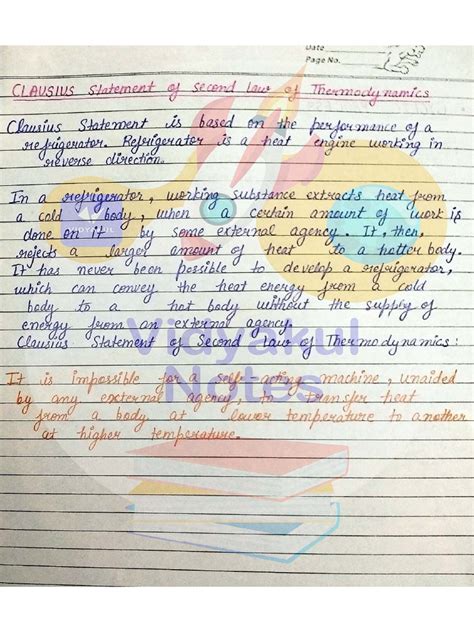 Date
Page No.
CLAUSIUS Statement of Second Law of Thermodynamics
Clausius Statement is based on the performance of a
refrigerator. Refrigerator is a heat engine working in
reverse direction.
In a refrigerator, working substance extracts heat from
a cold body, when a certain amount of work is
done on it by some external agency. It, then,
rejects a larger amount of heat to a hotter body.
It has never been possible to develop a refrigerator,
which can convey the heat energy from a cold
body to a hot body without the supply of
energy from an external agency.
Clausius Statement of Second Law of Thermodynamics:
It is impossible for a self-acting machine, unaided
by any external agency, to transfer heat
from a body at lower temperature to another
at higher temperature.
Vidyakul
Notes